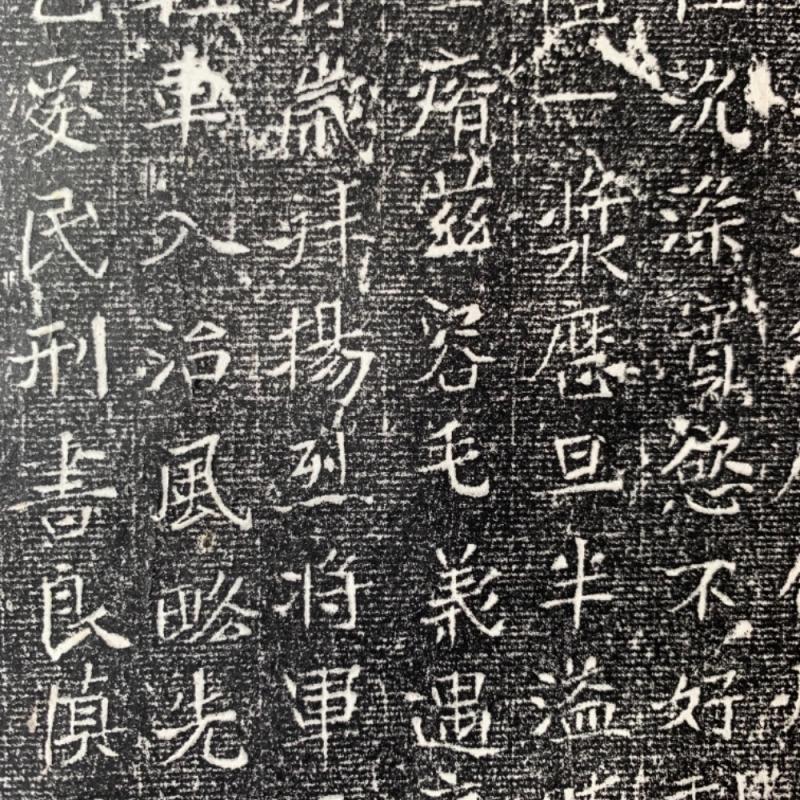 沉深寡慾不好
一漿歷旦半溢
瘠茲容毛義遇
歲拜揚烈將軍
車入治風略先
愛民刑書良慎